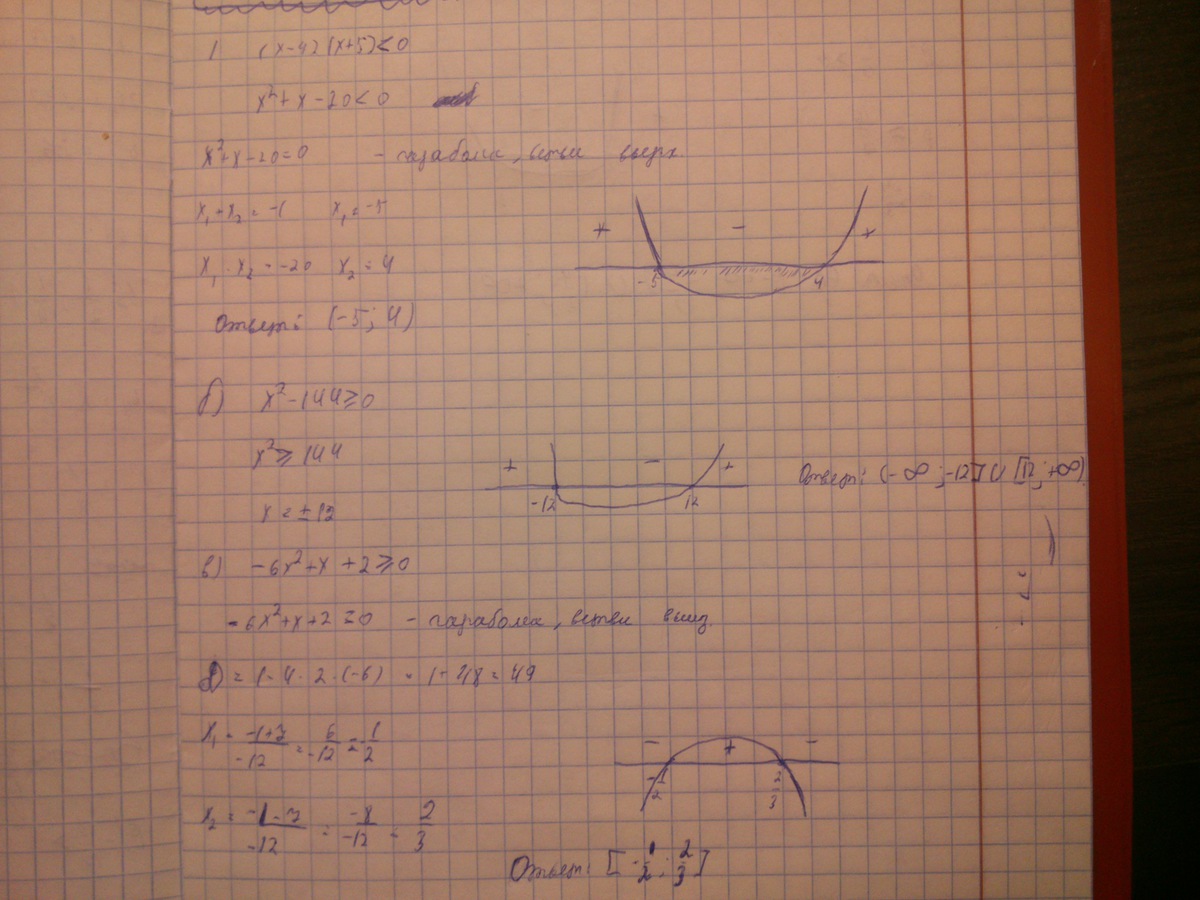 1 (x-4)(x+5)<0
x²+x-20<0
x²+x-20=0 - парабола, ветви вверх
x₁+x₂=-1 x₁=-5
x₁·x₂=-20 x₂=4
+ - +
-5 4
Ответ: (-5; 4)
б) x²-144≥0
x²≥144
x=±12
+ - +
-12 12
Ответ: (-∞; -12]∪[12; +∞)
в) -6x²+x+2≥0
-6x²+x+2=0 - парабола, ветви вниз.
D=1-4·2·(-6)=1+48=49
x₁=\frac{-1+7}{-12}=\frac{6}{-12}=-\frac{1}{2}
- + -
-\frac{1}{2} \frac{2}{3}
x₂=\frac{-1-7}{-12}=\frac{-8}{-12}=\frac{2}{3}
Ответ: [-\frac{1}{2}; \frac{2}{3}]